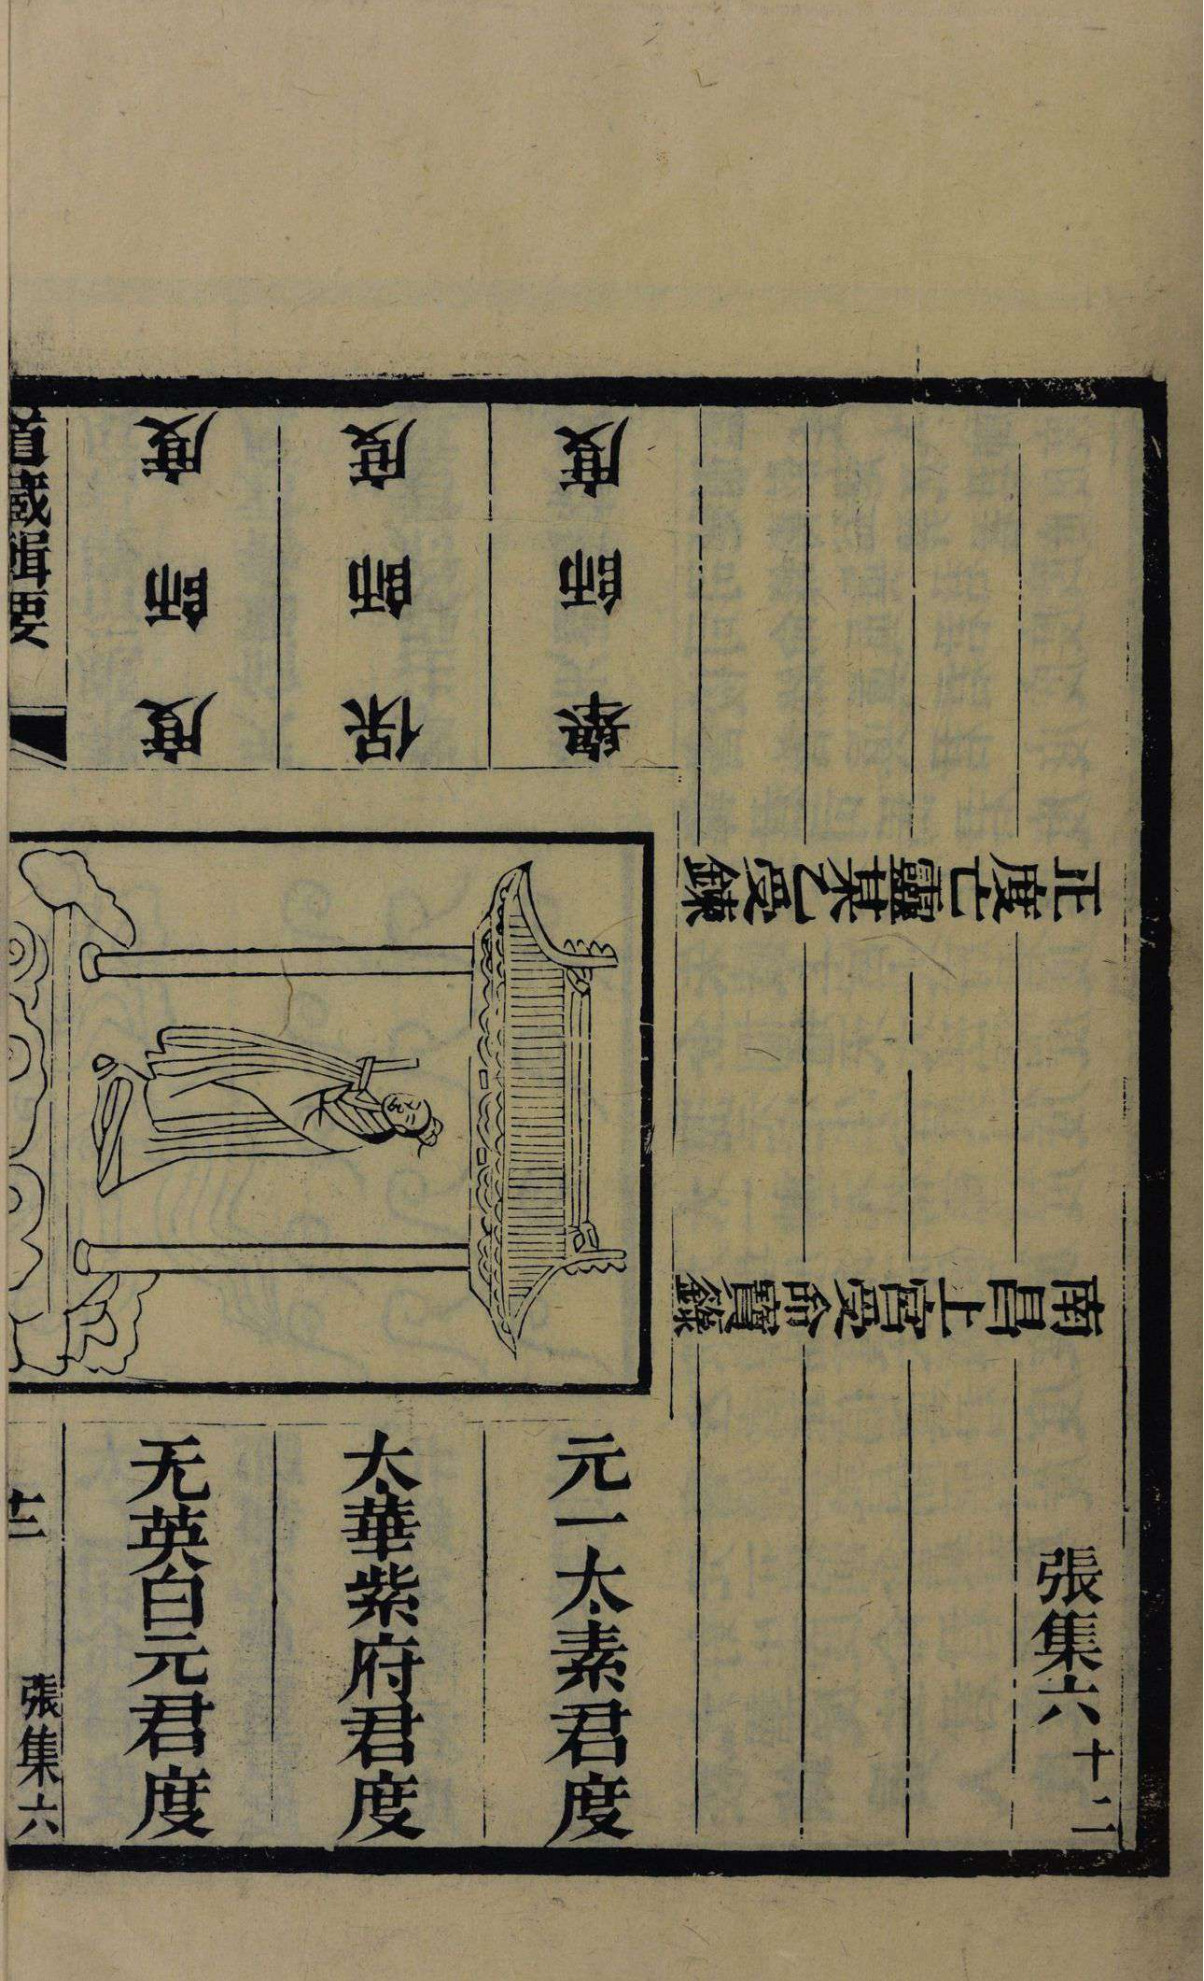 張集六 十二
正度亡靈某乙受鍊
南昌上宮受命寶籙
舉師度
元一太素君度
保師度
太華紫府君度
度師度
无英白元君度
道藏輯要
張集六